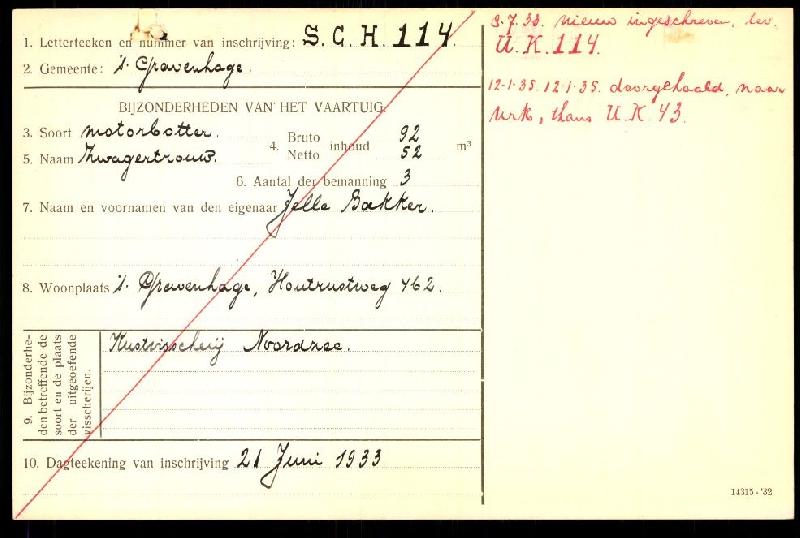 1. Letterteeken en nummer van inschrijving: S.C.H. 114.
2. Gemeente: 's. Gravenhage.
BIJZONDERHEDEN VAN HET VAARTUIG
3. Soort motorbotter.
4. Bruto inhoud 92 m³
Netto 52
5. Naam Zwagertrouw.
6. Aantal der bemanning 3
7. Naam en voornamen van den eigenaar Jelle Bakker.
8. Woonplaats 's. Gravenhage, Houtrustweg 462.
9. Bijzonderhe-
den betreffende de
soort en de plaats
der uitgeoefende
visscherijen.
Kustvisscherij Noordzee.
10. Dagteekening van inschrijving 21 Juni 1933
nieuw ingeschreven, lev.
U.K. 114.
12-1-35. 12-1-35. doorgehaald, naar
Urk, thans U.K. 43.
14315-'32